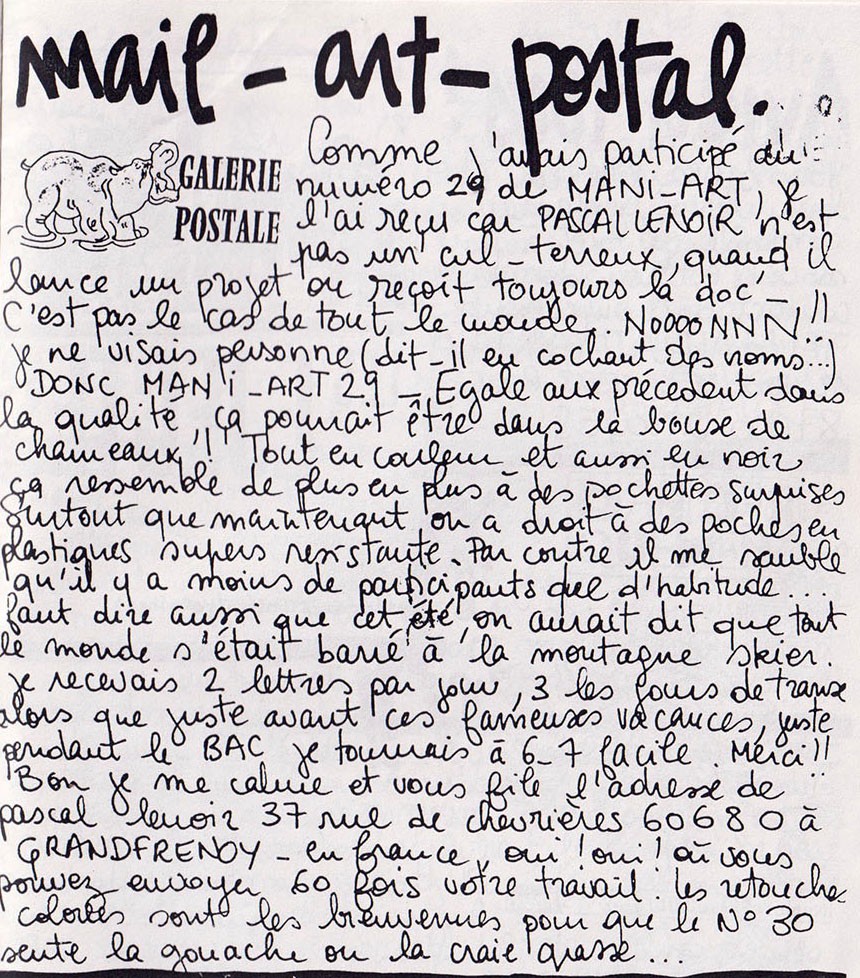 mail - art - postal.
GALERIE
POSTALE
Comme j'avais participé au
numéro 29 de MANI-ART, je
l'ai reçu car PASCAL LENOIR n'est
pas un cul-terreux, quand il
lance un projet on reçoit toujours la doc'-
C'est pas le cas de tout le monde. NOOOONNN!!
je ne visais personne (dit-il en cochant des noms...)
DONC MAN'i-ART 29 - Egale aux précedent dans
la qualité, ça pourrait être dans la bouse de
chameaux!! Tout en couleur et aussi en noir
ça ressemble de plus en plus à des pochettes surprises
surtout que maintenant on a droit à des poches en
plastiques supers resistante. Par contre il me semble
qu'il y a moins de participants que d'habitude...
faut dire aussi que cet été, on aurait dit que tout
le monde s'était barré à la montagne skier.
je recevais 2 lettres par jour, 3 les jours de transe
alors que juste avant ces fameuses vacances, juste
pendant le BAC je tournais à 6-7 facile. Merci!!
Bon je me calme et vous file l'adresse de
pascal lenoir 37 rue de chevrières 60680 à
GRANDFRENOY - en france, oui! oui! où vous
pouvez envoyer 60 fois votre travail. les retouches
colorées sont les bienvenues pour que le N° 30
sente la gouache ou la craie grasse...